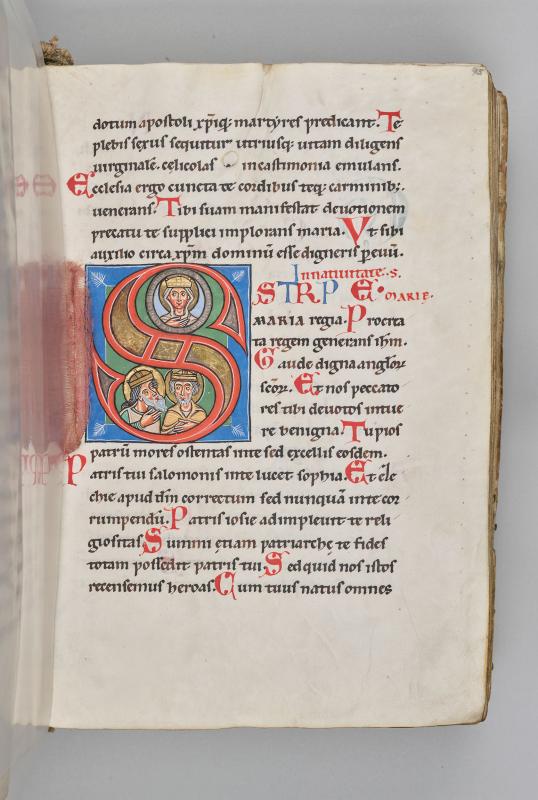 95
dotum apostoli xp̄iq; martyres predicant. Te
plebis sexus sequitur utriusq; uitam diligens
uirginale. cęlicolas in castimonia emulans.
Ecclesia ergo cuncta te cordibus teq; carminib;
uenerans. Tibi suam manifestat deuotionem
precatu te supplici implorans maria. Vt sibi
auxilio circa xp̄m dominū esse digneris p euū.
In natiuitate. s.
STRPE. MARIĘ.
MARIA regia. Procrea
ta regem generans ih̄m.
Gaude digna anglor
scor. Et nos peccato
res tibi deuotos intue
re benigna. Tu pios
patrū mores ostentas in te sed excellis eosdem.
Patris tui salomonis in te lucet sophia. Et
chie apud dm̄ correctum sed nunquā in te cor
rumpendū. Patris iosie adimpleuit te reli
giositas Summi etiam patriarchę te fides
totam possedit patris tui. Sed quid nos istos
recensemus heroas. Cum tuus natus omnes